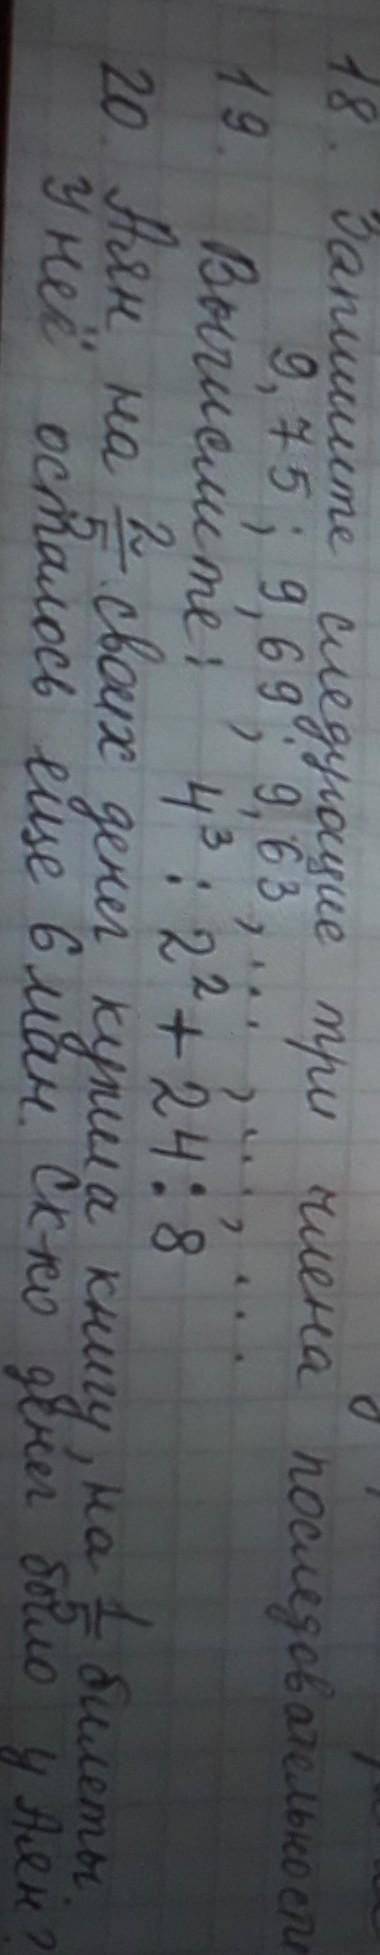 18. Запишите следующие три члена последовательности
9,75; 9,69; 9,63, ..., ..., ...
19. Вычислите: 4³ : 2² + 24 : 8
20. Аян на 2/5 своих денег купила книгу, на 1/5 билеты.
У неё осталось еще 6 ман. Ск-ко денег было у Аян?